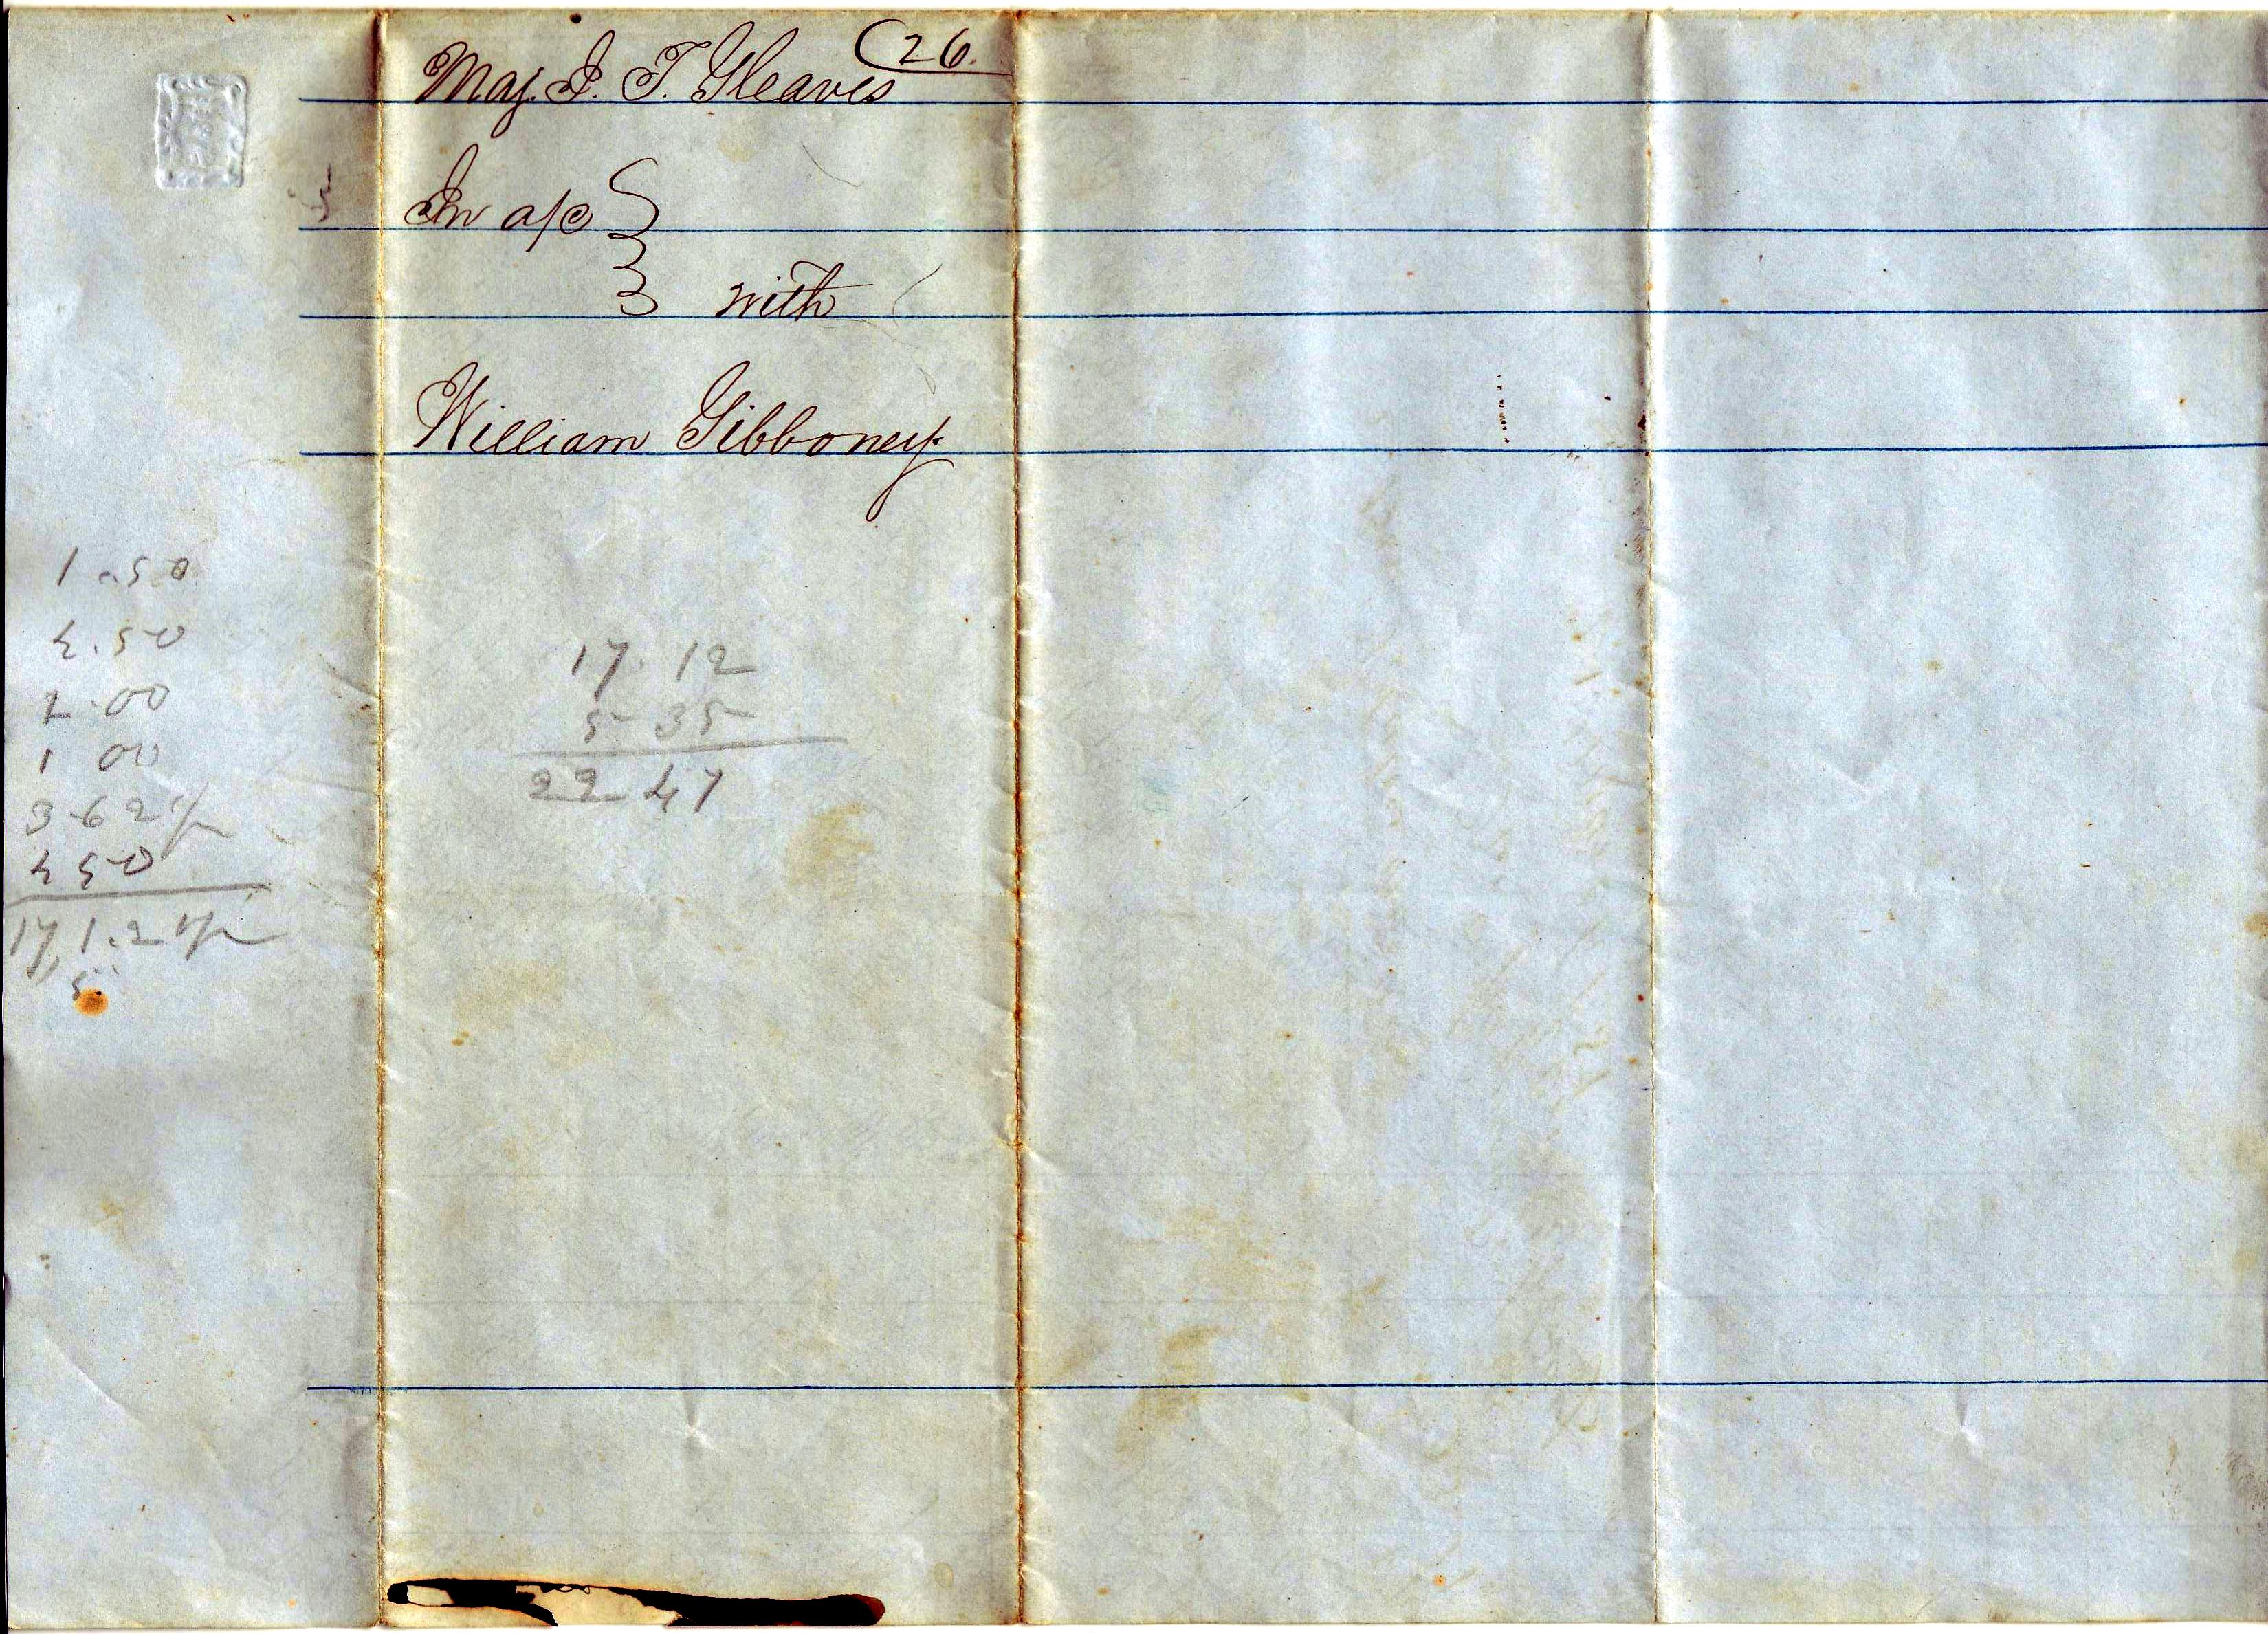 26.
Maj. J. T. Gleaves
In a/c
with
William Gibboney.
1.50
4.50
2.00
1 00
3.62 1/2
4 50
17,1.2 1/2
5
17.12
5 35
22 47